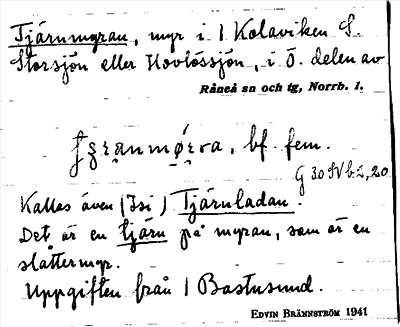 Tjärnmyran, myr i. l Kolaviken S.
Storsjön eller Hovlössjön, i Ö. delen av
Råneå sn och tg, Norrb. l.
bf. fem.
G 30 SV b 2, 20
Kallas även (Isi) Tjärnladan.
Det är en tjärn på myran, som är en
slåttermyr.
Uppgiften från l Bastusund.
EDVIN BRÄNNSTRÖM 1941